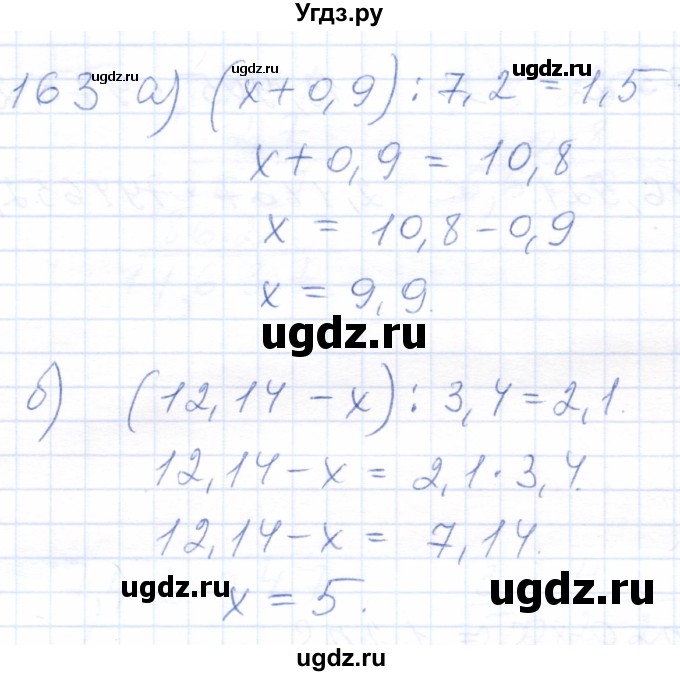 Угдз.ру
163 а) (х+0,9) : 7,2 = 1,5
х+0,9 = 10,8
х = 10,8-0,9
х = 9,9.
б) (12,14 - х) : 3,4 = 2,1.
12,14 - х = 2,1 · 3,4.
12,14 - х = 7,14.
х = 5.
ugdz.ru
ugdz.ru
ugdz.ru
ugdz.ru
ugdz.ru
ugdz.ru
ugdz.ru
ugdz.ru